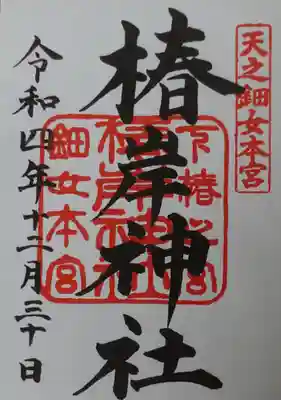 天之鈿女本宮
椿岸神社
下椿之宮
椿岸神社
鈿女本宮
令和四年十二月三十日